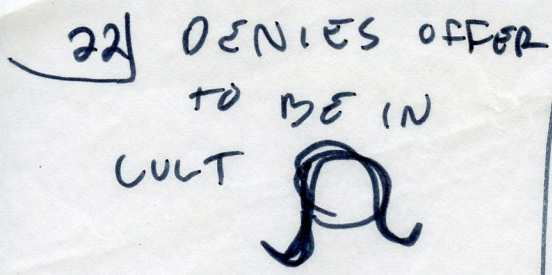 22) DENIES OFFER
TO BE IN
CULT